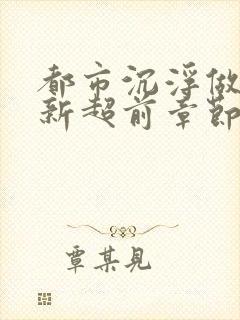 都市沉浮做
新超前章節
覃某見